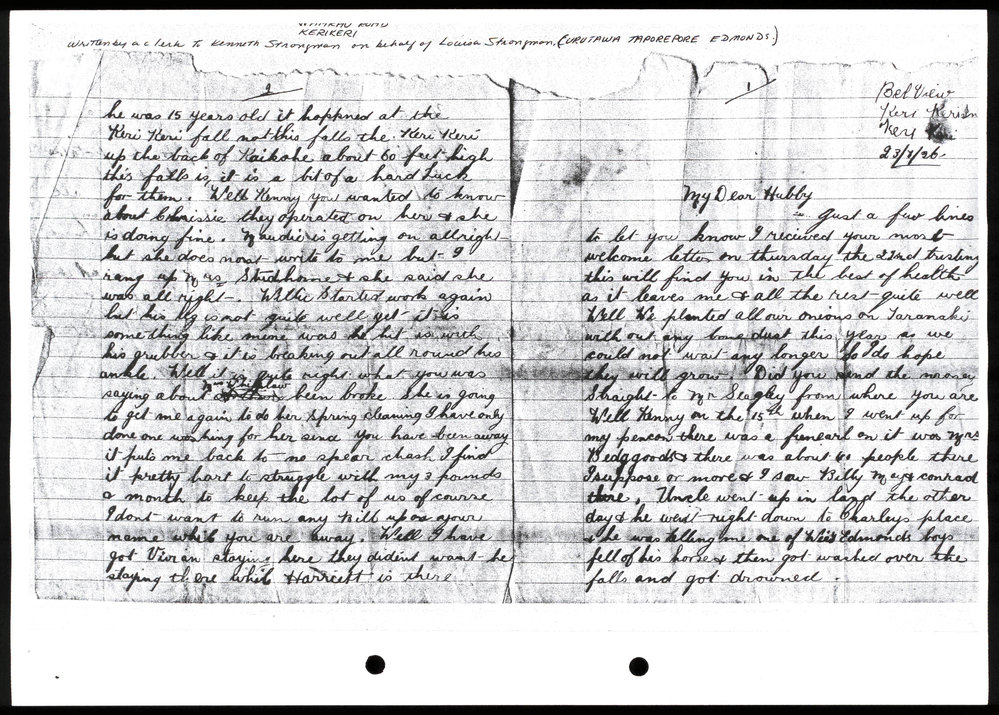 WAIMATE ROAD
KERIKERI
Written by a clerk to Kenneth Strongman on behalf of Louisa Strongman, (URUTAWA TAPOREPORE EDMONDS.)
1
Bel View
Keri Keri
Keri Keri
23/7/26
My Dear Hubby
Just a few lines
to let you know I recieved your most
welcome letter on thursday the 22nd trusting
this will find you in the best of health
as it leaves me & all the rest quite well
Well We planted all our oneons on Taranaki
with out any bone dust this year as we
could not wait any longer so do hope
they will grow. Did you send the money
Straight to Mr Seagley from where you are
Well Kenny on the 15th when I went up for
my pencon there was a funearl on it was Mrs
Bedggoods & there was about 60 people there
I suppose or more & I saw Billy May & conrad
there. Uncle went up in land the other
day & he went right down to Charleys place
& he was telling me one of Wiis Edmonds boys
fell of his horse & then got washed over the
falls and got drowned.
2
he was 15 years old it happned at the
Keri Keri fall not this falls the Keri Keri
up the back of Kaikohe about 60 feet high
this falls is, it is a bit of a hard luck
for them. Well Kenny you wanted to know
about Chrissie they operated on her & she
is doing fine. Maudie is getting on allright
but she does not write to me but I
rang up Mrs Stridhome & she said she
was all right. Willie Started work again
but his leg is not quite well yet it is
something like mine was he hit is with
his grubber & it is breaking out all round his
ankle. Well it is quite right what you was
saying about been broke She is going
to get me again to do her spring cleaning I have only
done one washing for her since you have been away
it puts me back to no spear chash I find
it pretty hart to struggle with my 3 pounds
a month to keep the lot of us of course
I dont want to run any Bill up on your
name while you are away. Well I have
got Vivian staying here they dident want he
staying there while Harriett is there